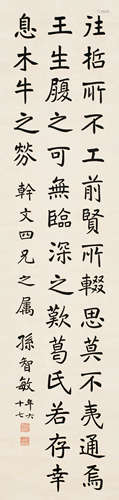 往哲所不工前賢所輟思莫不夷通焉
王生履之可無臨深之歎葛氏若存幸
息木牛之勞
幹文四兄之属
孫智敏
年六十七